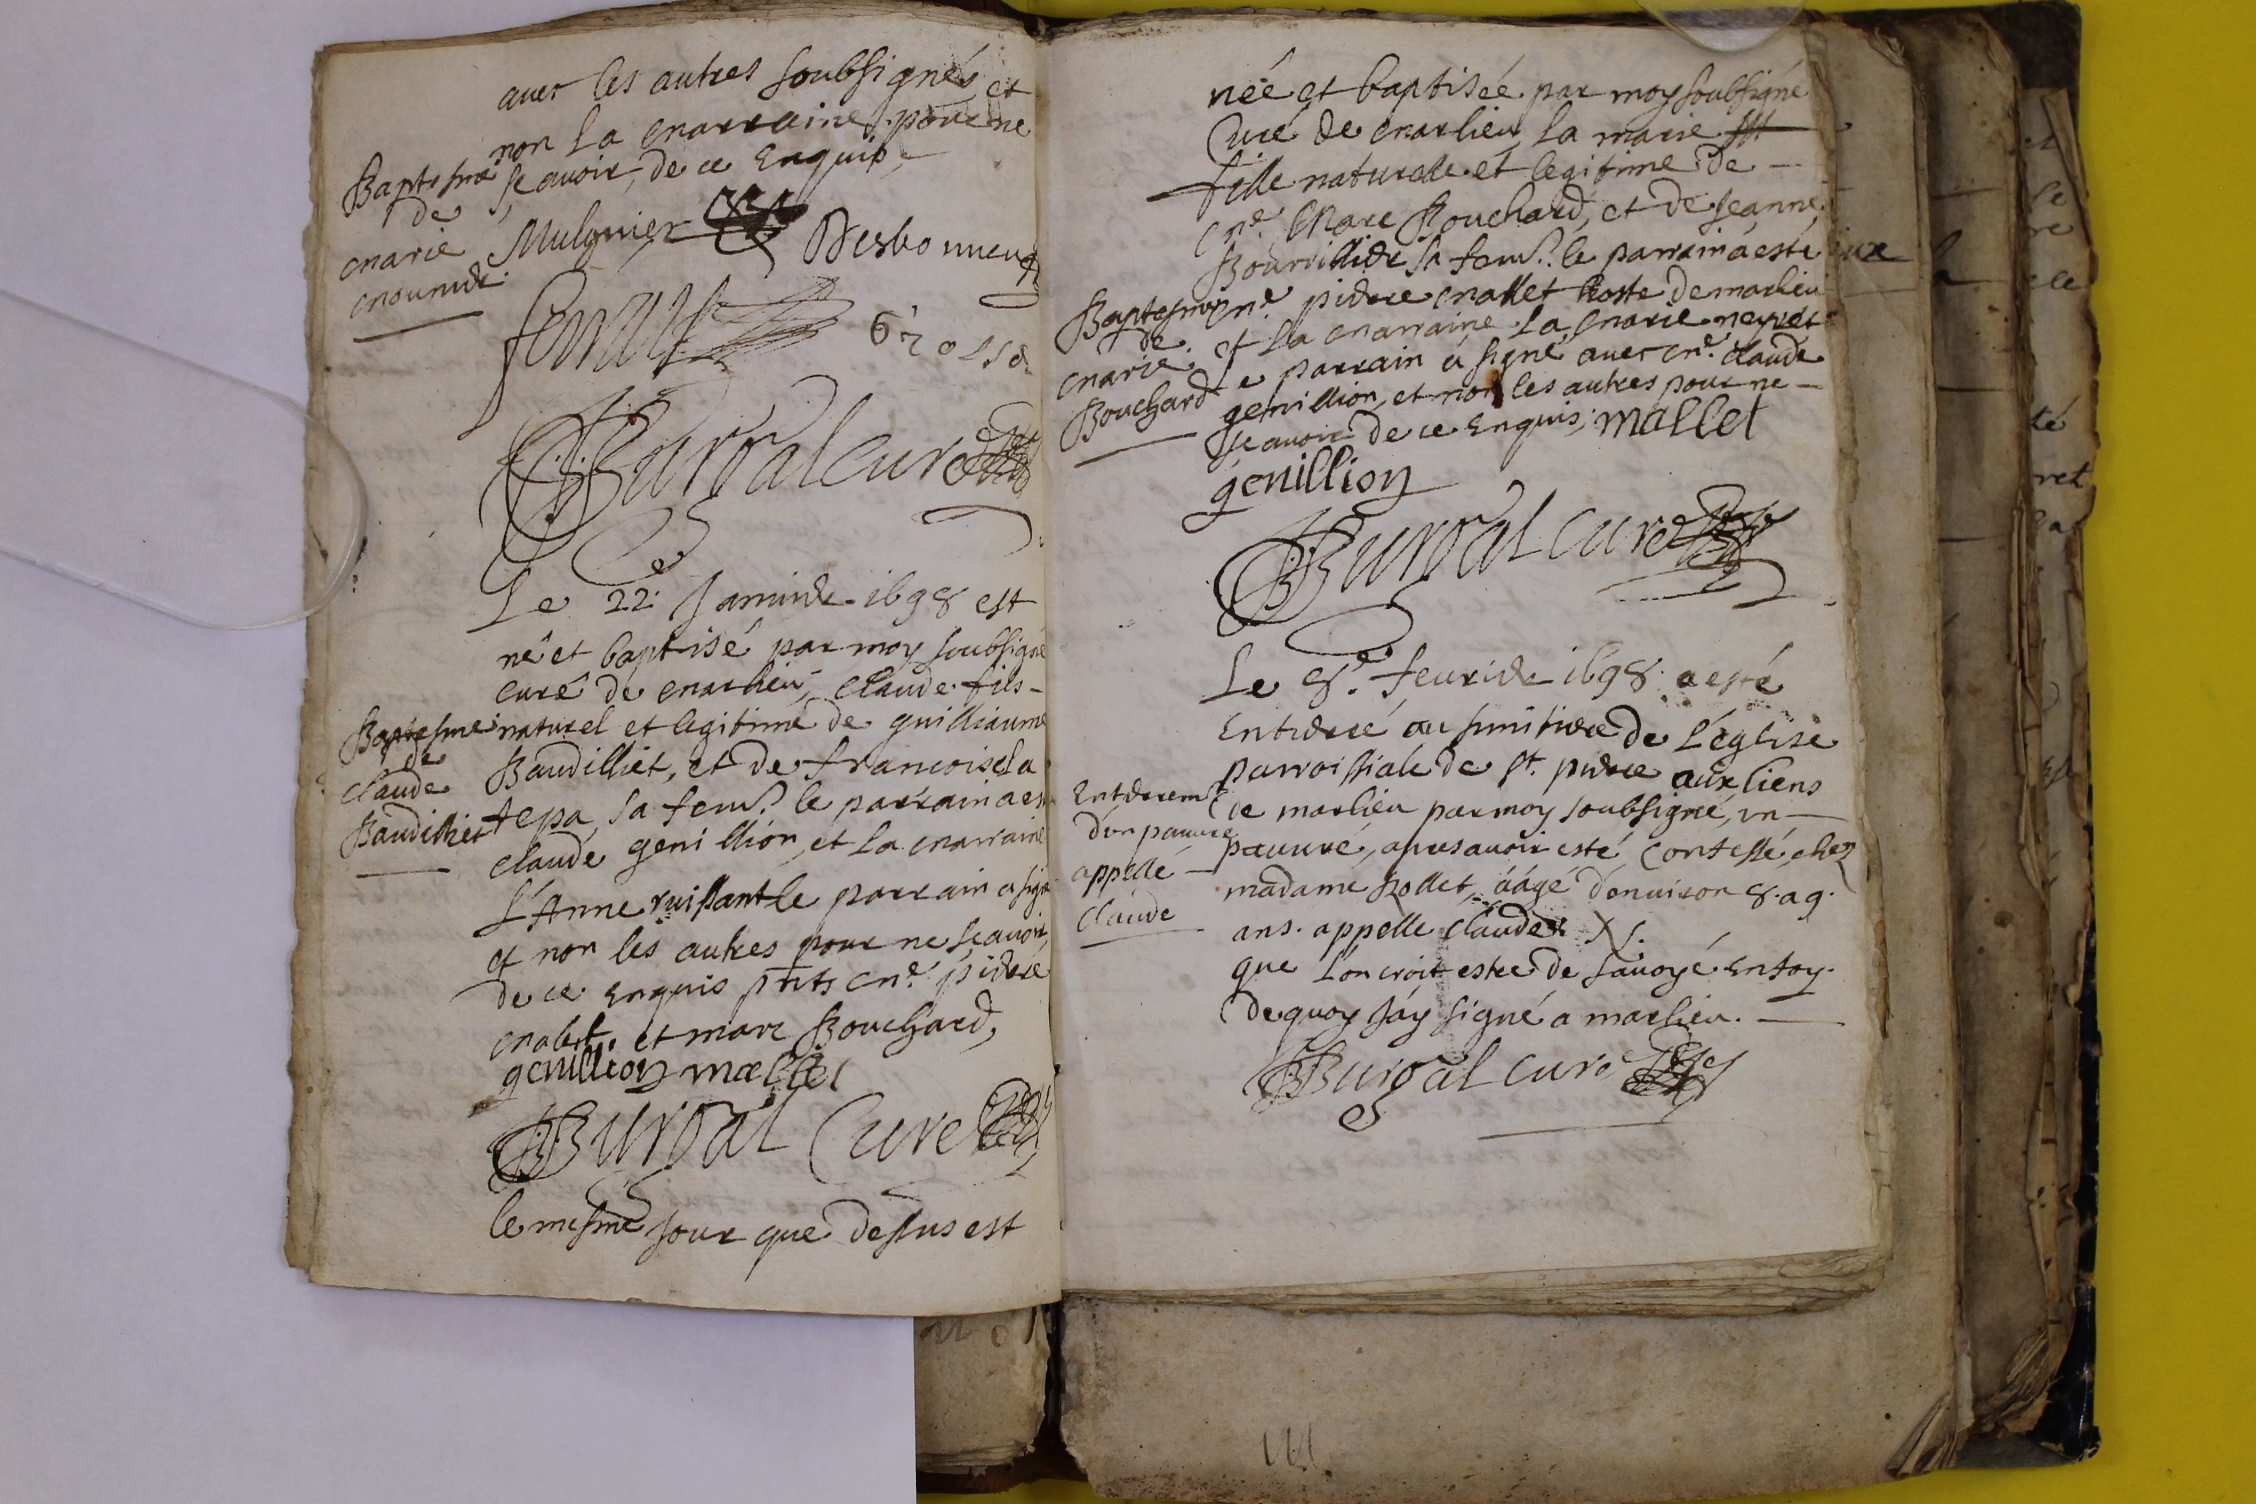 avec les autres soubsignés et
non la marraine pour ne
Baptesme
de
marie
mounier
scavoir, de ce Enquis,
Mulgnier Desbonneux
ferrast grosse
BBurdal curé
Le 22. Janvier 1698 est
né et baptisé par moy soubsigné
curé de marlieu, Claude fils
Baptesme
de
claude
Baudilliet
naturel et legitime de guilliaume
Baudilliet, et de francoise la
tepa sa fem.e le parrain a est
claude genillion, et la marraine
l'Anne ruissant le parrain a signé
et non les autres pour ne scavoir,
de ce enquis pnts m.e pierre
malet. et marc Bouchard,
genillion mallet
BBurdal Curé
le mesme jour que dessus est
née et baptisée par moy soubsigné
Curé de marlieu, la marie
fille naturelle et legitime de
m.e Marc Bouchard, et de jeanne
Bourrillier sa fem.e le parrain a esté
Baptesme
de
marie
Bouchard
m.e pierre mallet hoste de marlieu
et la marraine la marie neyret
le parrain a signé avec m.e claude
genillion, et non les autres pour ne
scavoir de ce enquis, mallet
genillion
BBurdal curé
Le 8.e feurier 1698 a esté
Enterré au simitiere de l'église
parroissiale de St. pierre aux liens
Enterem.t
d'un pauure
appellé
Claude
de marlieu par moy soubsigné, un
pauuré, apres avoir esté Confessé, chez
madame Rollet, áagé d'enuiron 8. a 9.
ans. appelle Claude
que l'on croit estre de sauoyé. En foy
de quoy j'ay signé a marlieu.
BBurdal curé